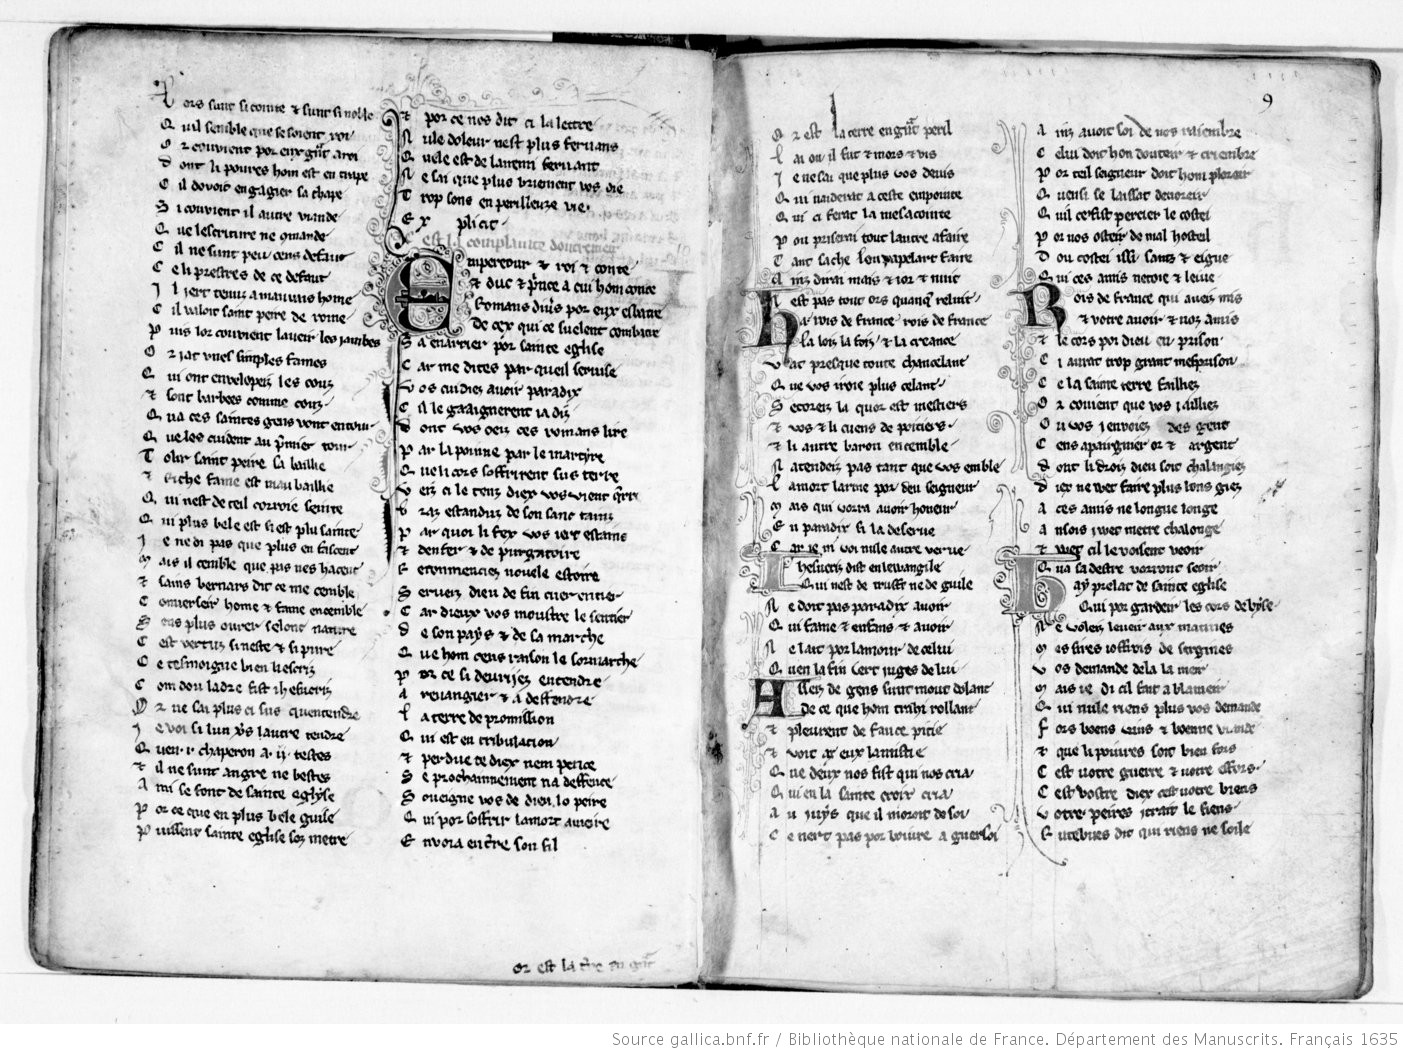 Lors sunt si cointe & sunt si noble
Quil semble que se soient roi
Or couvient por eux grant aroi
dont li povres hom est en tripe
Cil dovoit engagier sa chape
Si couvient il autre viande
Que lescriture ne comande
Cil ne sunt peu cens defaut
Celi prestres de ce defaut
Il iert tenuz a mauvais home
Cil valoit saint peire de rome
Puis lor couvient laveir les iambes
Or iat unes simples fames
Qui ont envelopeiz les couz
& sont barbees comme couz
Qua ces saintes gens vont entour
Queles cuident au premier tour
Tolir saint peire sa baillie
& riche fame est mau baillie
Qui nest de teil corroie seinte
Qui plus bele est si est plus sainte
Je ne di pas que plus en fascent
Mais il cemble que pas nes hacent
& sains bernars dit ce me cemble
Converseir home & fame encemble
Sens plus ovrer selonc nature
Cest vertuz si neste & si pure
Ce tesmoigne bien li escriz
Com dou ladre fist ihesucriz
Or ne sai plus ci sus quentendre
Je voi si lun vers lautre tendre
Quen .i. chaperon a .ii. testes
& il ne sunt angre ne bestes
Ami se font de sainte eglyse
Por ce que en plus bele guise
Puissent sainte eglise soz metre
& por ce nos dit ci la lettre
Nule doleur nest plus fervans
Quele est de lanemi servant
Ne sai que plus briement vos die
Trop sons en perilleuze vie.
Explicit.
Cest li complainte doutremeir
Empereour & roi & conte
& duc & prince a cui hom conte
Romans divers por eux esbatre
De cex qui ce suelent combatre
Sa enarrier por sainte eglise
Car me dites par queil servise
Vos cuidiez avoir paradix
Cil le gaaignerent iadiz
dont vos oeiz ces romans lire
Par la poinne par le martyre
Que li cors soffrirent sus terre
Veiz ci le tens diex vos vient querre
braz estanduz de son sanc tainz
Par quoi li fex vos iert estains
& denfer & de purgatoire
Reconmenciez novele estoire
Serveiz dieu de fin cuer entier
Car dieux vos moustre le sentier
de son pays & de sa marche
Que hom cens raison le sormarche
Por ce si devriiez entendre
A revangier & a deffendre
La terre de promission
Qui est en tribulacion
& perdue ce diex nem pence
Se prochainnement na deffence
Soveigne vos de dieu lo peire
Qui por soffrir la mort ameire
Envoia en terre son fil
or est la terre en grant
9
Or est la terre en grant peril
Lai ou il fut & mors & vis
Je ne sai que plus vos devis
Qui naideirat a ceste empointe
Qui ci ferat la mesacointe
Pou priserai tout lautre afaire
Tant sache lon papelart faire
Ainz dirai mais & ior & nuit
Nest pas tout ors quanque reluit
Ha rois de france rois de france
La lois la foiz & la creance
Vat presque toute chancelant
Que vos iroie plus celant
Secoreiz la quor est mestiers
& vos & li cuens de poitiers
& li autre baron encemble
Natendeiz pas tant que vos emble
La mort larme por deu seigneur
Mais qui vorra avoir honeur
En paradix si la deserve
Car ie ni voi nule autre verve
Ihesucriz dist en lewangile
Qui nest de truffe ne de guile
Ne doit pas paradix avoir
Qui fame & enfans & avoir
Ne lait por lamour de celui
Quen la fin iert iuges de lui
Asseiz de gens sunt mout dolant
De ce que hom trahi rollant
& pleurent de fauce pitie
& voit az eux lamistie
Que deux nos fist qui nos cria
Qui en la sainte croix cria
Au iuys que il moroit de soi
Ce nert pas por boivre a guersoi
Ainz avoit soi de nos raiembre
Celui doit hon douteir & criembre
Por teil seigneur doit hom ploreir
Quensi se laissat devoreir
Quil ce fist percier le costei
Por nos osteir de mal hosteil
Dou costei issi sancz & eigue
Qui ces amis netoie & leive
Rois de france qui aveiz mis
& votre avoir & voz amis
& le cors por dieu en prison
Ci aurat trop grant mesprison
Ce la sainte terre failliez
Or covient que vos i ailliez
Ou vos i envoieiz des gent
Cens apairgnier or & argent
dont li droiz dieu soit chalangiez
diex ne wet faire plus lons giez
A ces amis ne longue longe
Ansois i wet metre chalonge
& wet cil le voisent veoir
Qua sa destre vorront seoir
Hay prelat de sainte eglise
Qui por gardeir les cors de byse
Ne voleiz leveir aux matines
Messires ioffrois de sergines
Vos demande dela la mer
Mais ie di cil fait a blameir
Qui nule riens plus vos demande
Fors boens vins & boenne viande
& que li poivres soit bien fors
Cest votre guerre & votre effors
Cest vostre diex cest votre biens
Votre peires i trait le fiens
Rutebues dit qui riens ne soile
Source gallica.bnf.fr / Bibliothèque nationale de France. Département des Manuscrits. Français 1635